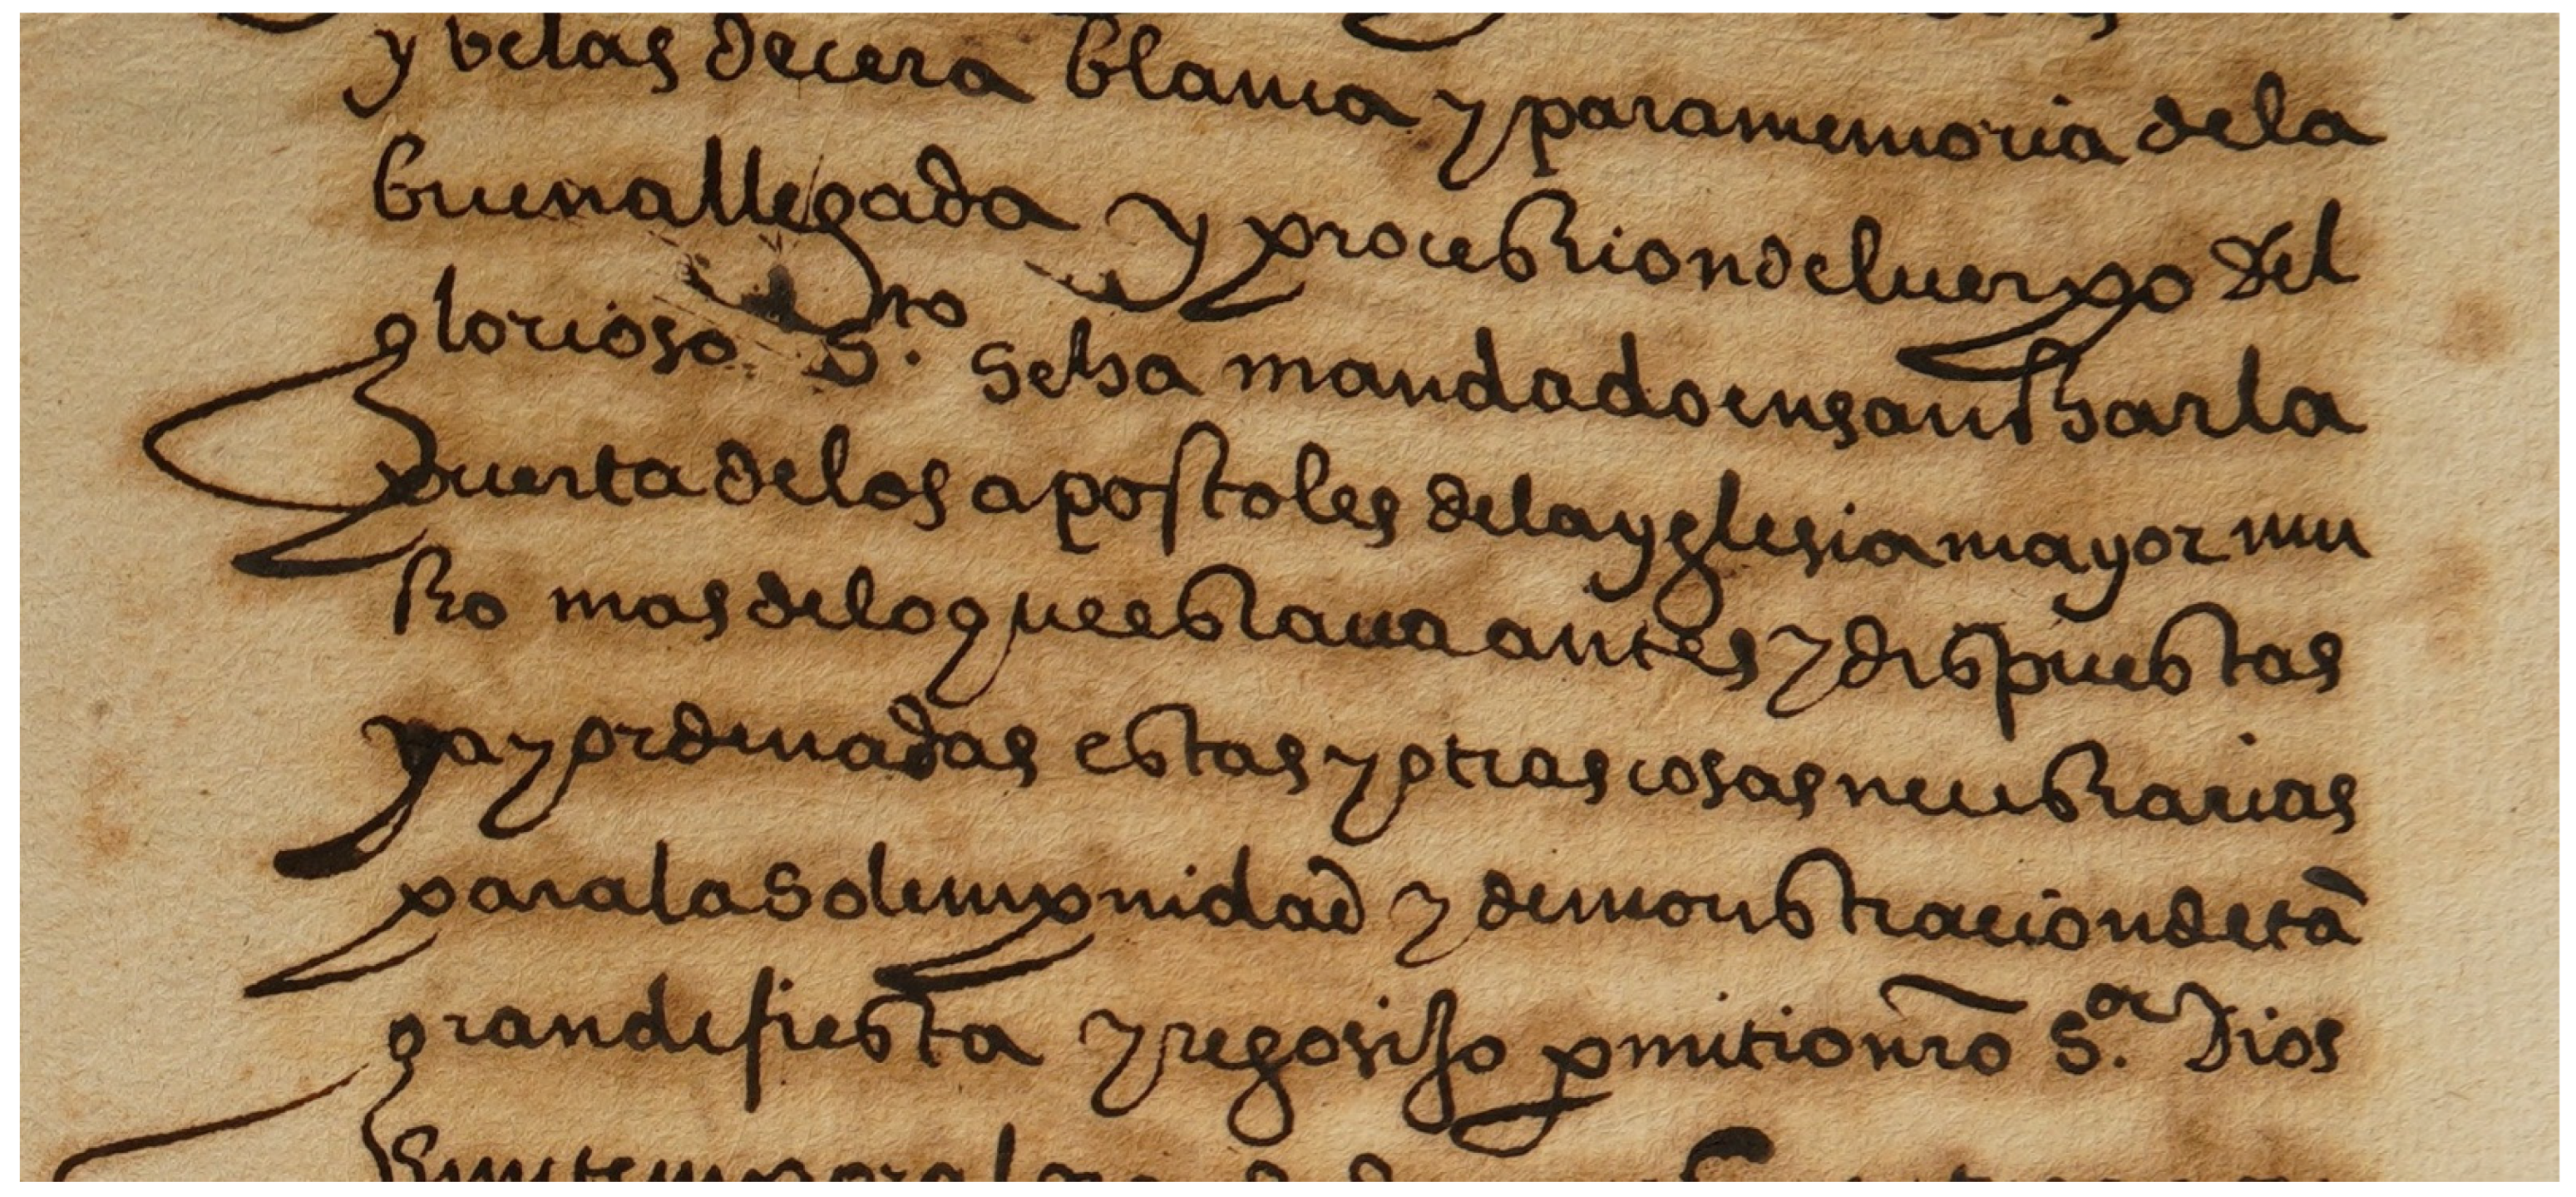 y velas de cera blanca y para memoria de la
buena llegada y procession del cuerpo del
glorioso S.to se ha mandado ensanchar la
puerta de los apostoles de la yglesia mayor mu
cho mas de lo que estaua antes y dispuestas
ya y ordenadas estas y otras cosas necessarias
para la solempnidad y demonstracion de tã
grande fiesta y regosijo pmitio nrõ S.or Dios